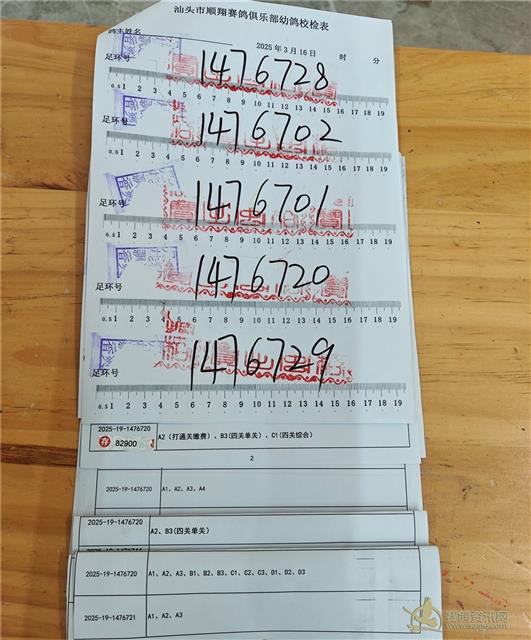 汕头市顺翔赛鸽俱乐部幼鸽校检表
鸽主姓名
2025 年 3 月 16 日 时 分
足环号 1476728
0.5 1 2 3 4 5 6 7 8 9 10 11 12 13 14 15 16 17 18 19
足环号 1476702
0.5 1 2 3 4 5 6 7 8 9 10 11 12 13 14 15 16 17 18 19
足环号 1476701
0.5 1 2 3 4 5 6 7 8 9 10 11 12 13 14 15 16 17 18 19
足环号 1476720
0.5 1 2 3 4 5 6 7 8 9 10 11 12 13 14 15 16 17 18 19
足环号 1476729
0.5 1 2 3 4 5 6 7 8 9 10 11 12 13 14 15 16 17 18 19
2025-19-1476720
82900
A2（打通关缴费）、B3(四关单关)、C1(四关综合)
2
2025-19-1476720 A1、A2、A3、A4
2025-19-1476720 A2、B3(四关单关)
2025-19-1476720 A1、A2、A3、B1、B2、B3、C1、C2、C3、D1、D2、D3
2025-19-1476721 A1、A2、A3
赛鸽资讯网